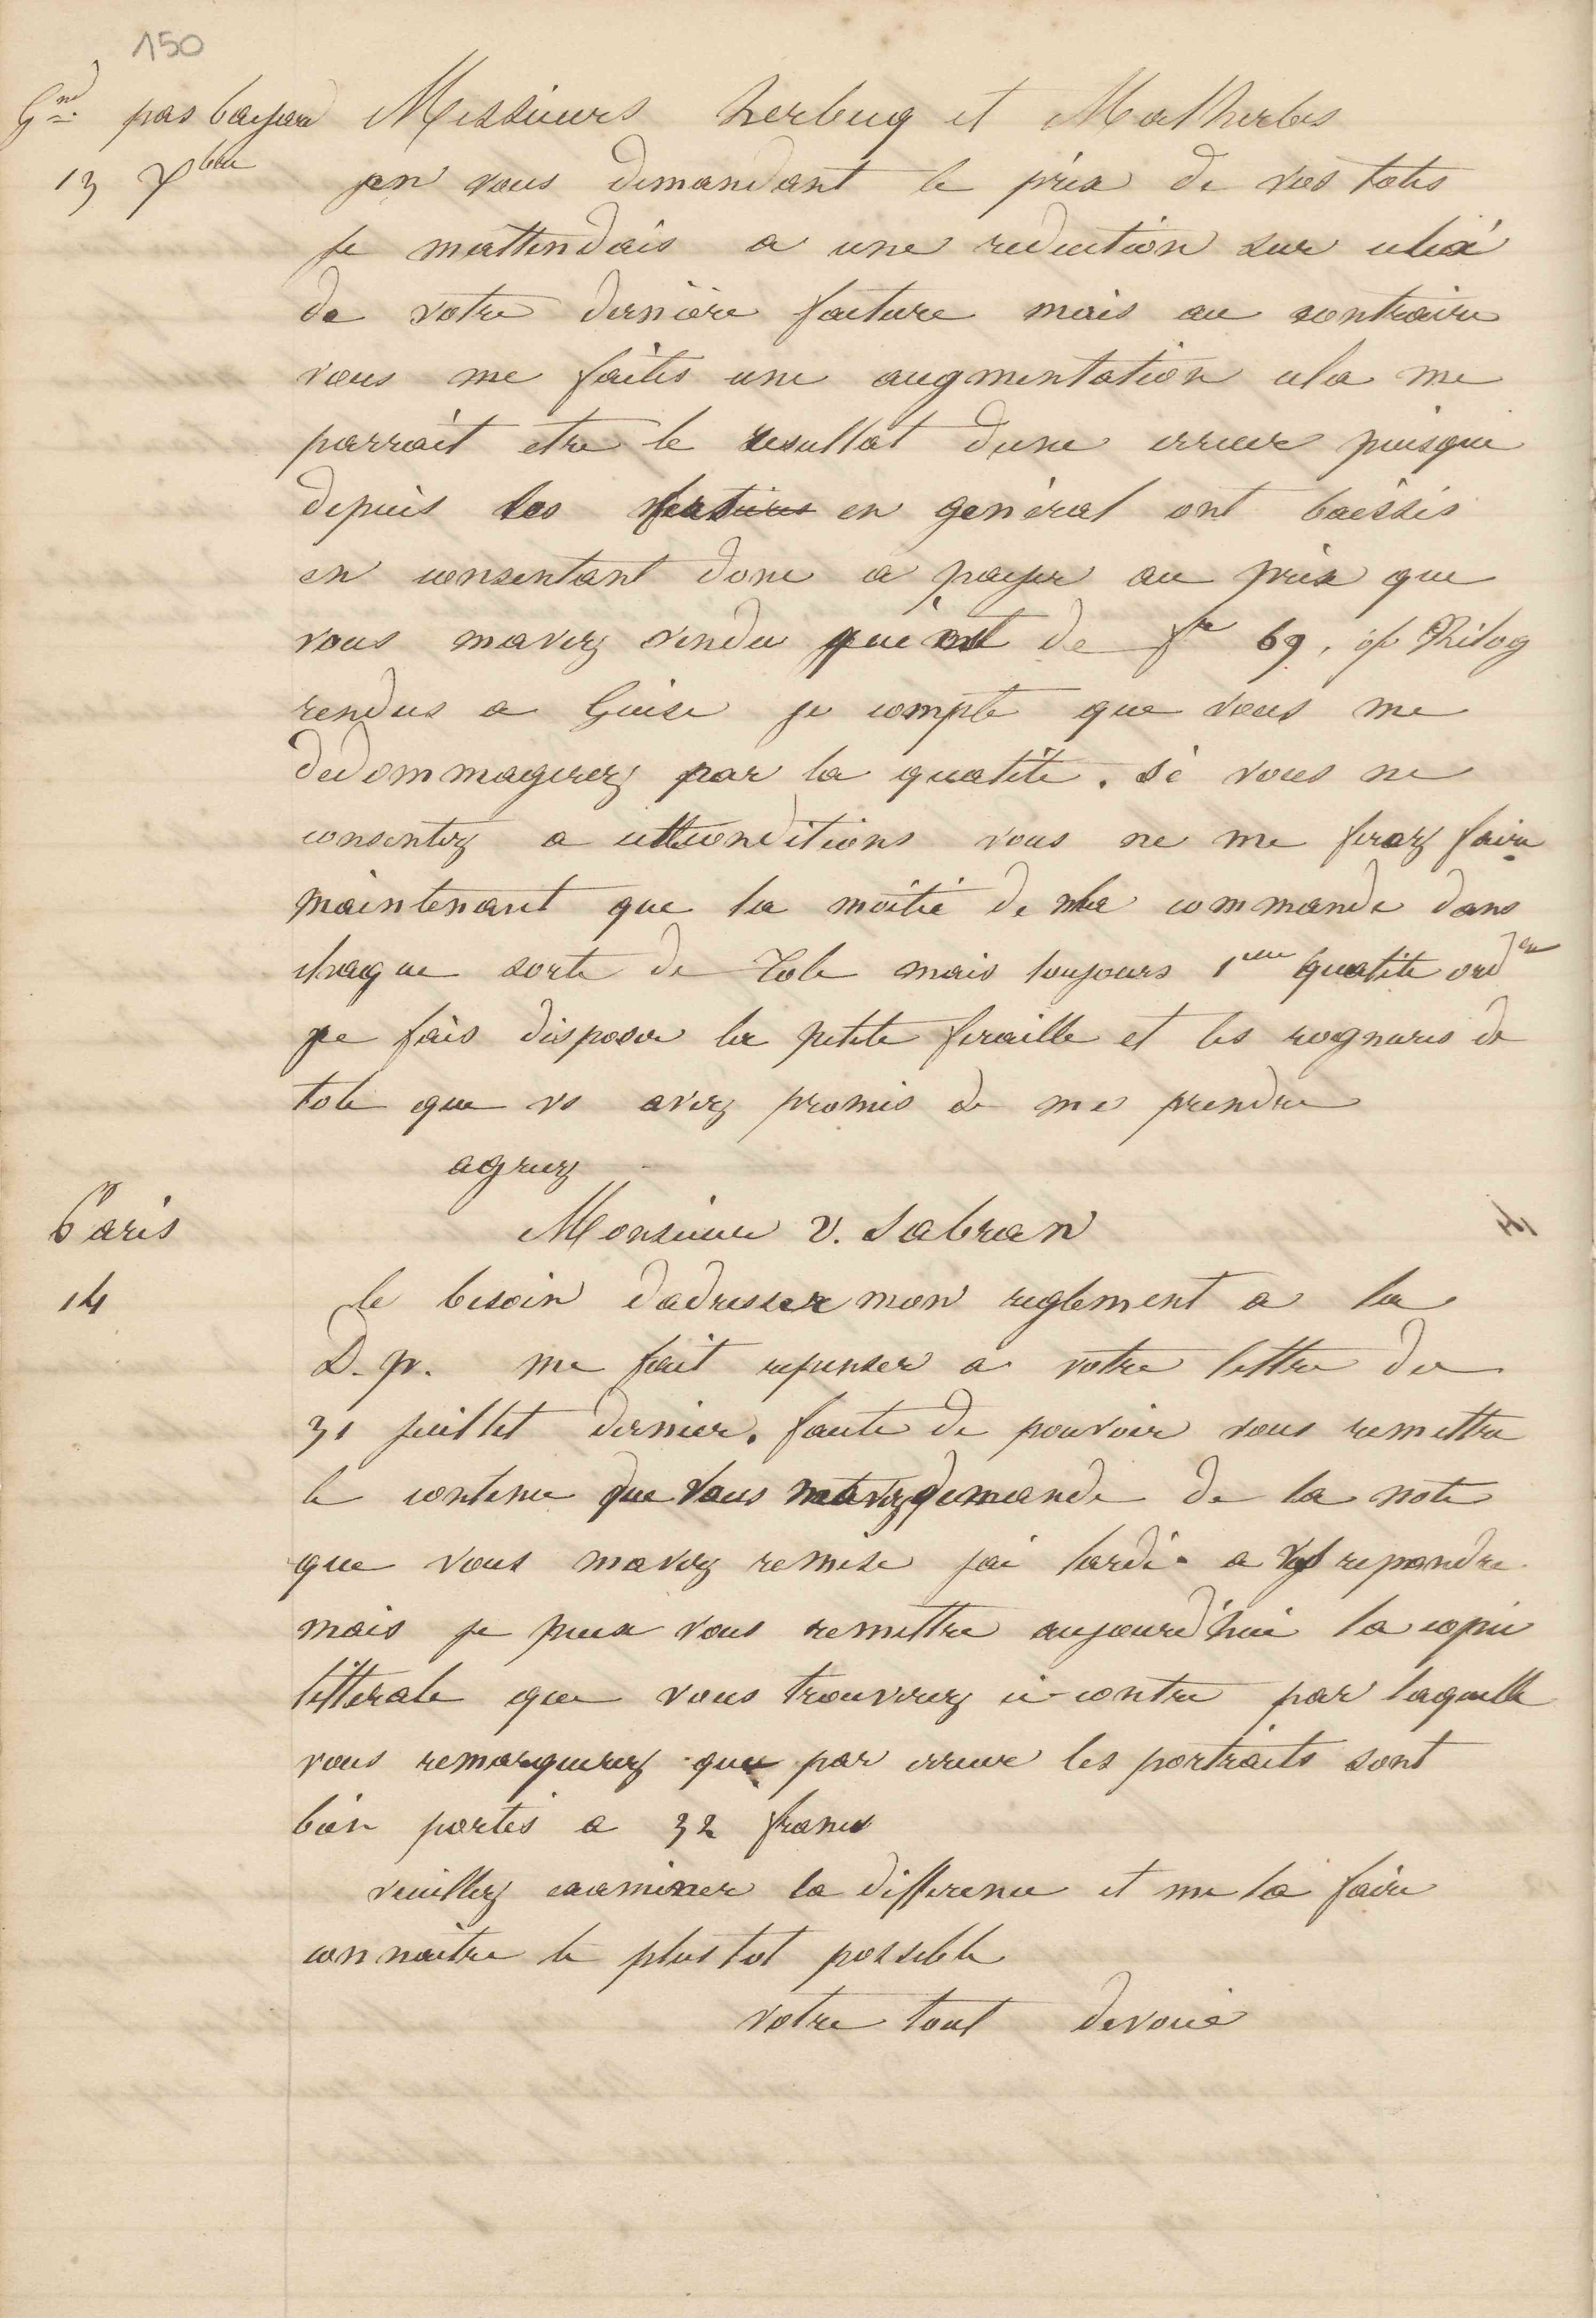 150
G.nd pas bayard Messieurs herbecq et Malherbes
13 7bre en vous demandant le prix de vos toles
je mattendais a une reduction sur celui
de votre dernière facture mais au contraire
vous me faites une augmentation cela me
parrait etre le resultat dune erreur puisque
depuis les en genéral ont baissés
en consentant donc a payer au prix que
vous mavez vendu qui est de fr 69, % Kilog
rendus a Guise je compte que vous me
dedommagerez par la qualité. si vous ne
consentez a cette conditions vous ne me ferez faire
maintenant que la moitié de ma commande dans
chaque sorte de Tole mais toujours 1ere qualite ordre
je fais disposer la petite feraille et les rognures de
tole que vs avez promis de me prendre
agreez
Paris Monsieur V. Sabran
14 le besoin dadresser mon reglement a la
D. p. me fait repenser a votre lettre du
31 juillet dernier. faute de pouvoir vous remettre
le contenu que vous mavez demande de la note
que vous mavez remise jai tardé a vs repondre
mais je peux vous remettre aujourd'hui la copie
litterale que vous trouverez ci-contre par laquelle
vous remarquerez que par erreur les portraits sont
bien portés a 32 francs
veuillez examiner la difference et me la faire
connaitre le plus tot possible
votre tout devoué